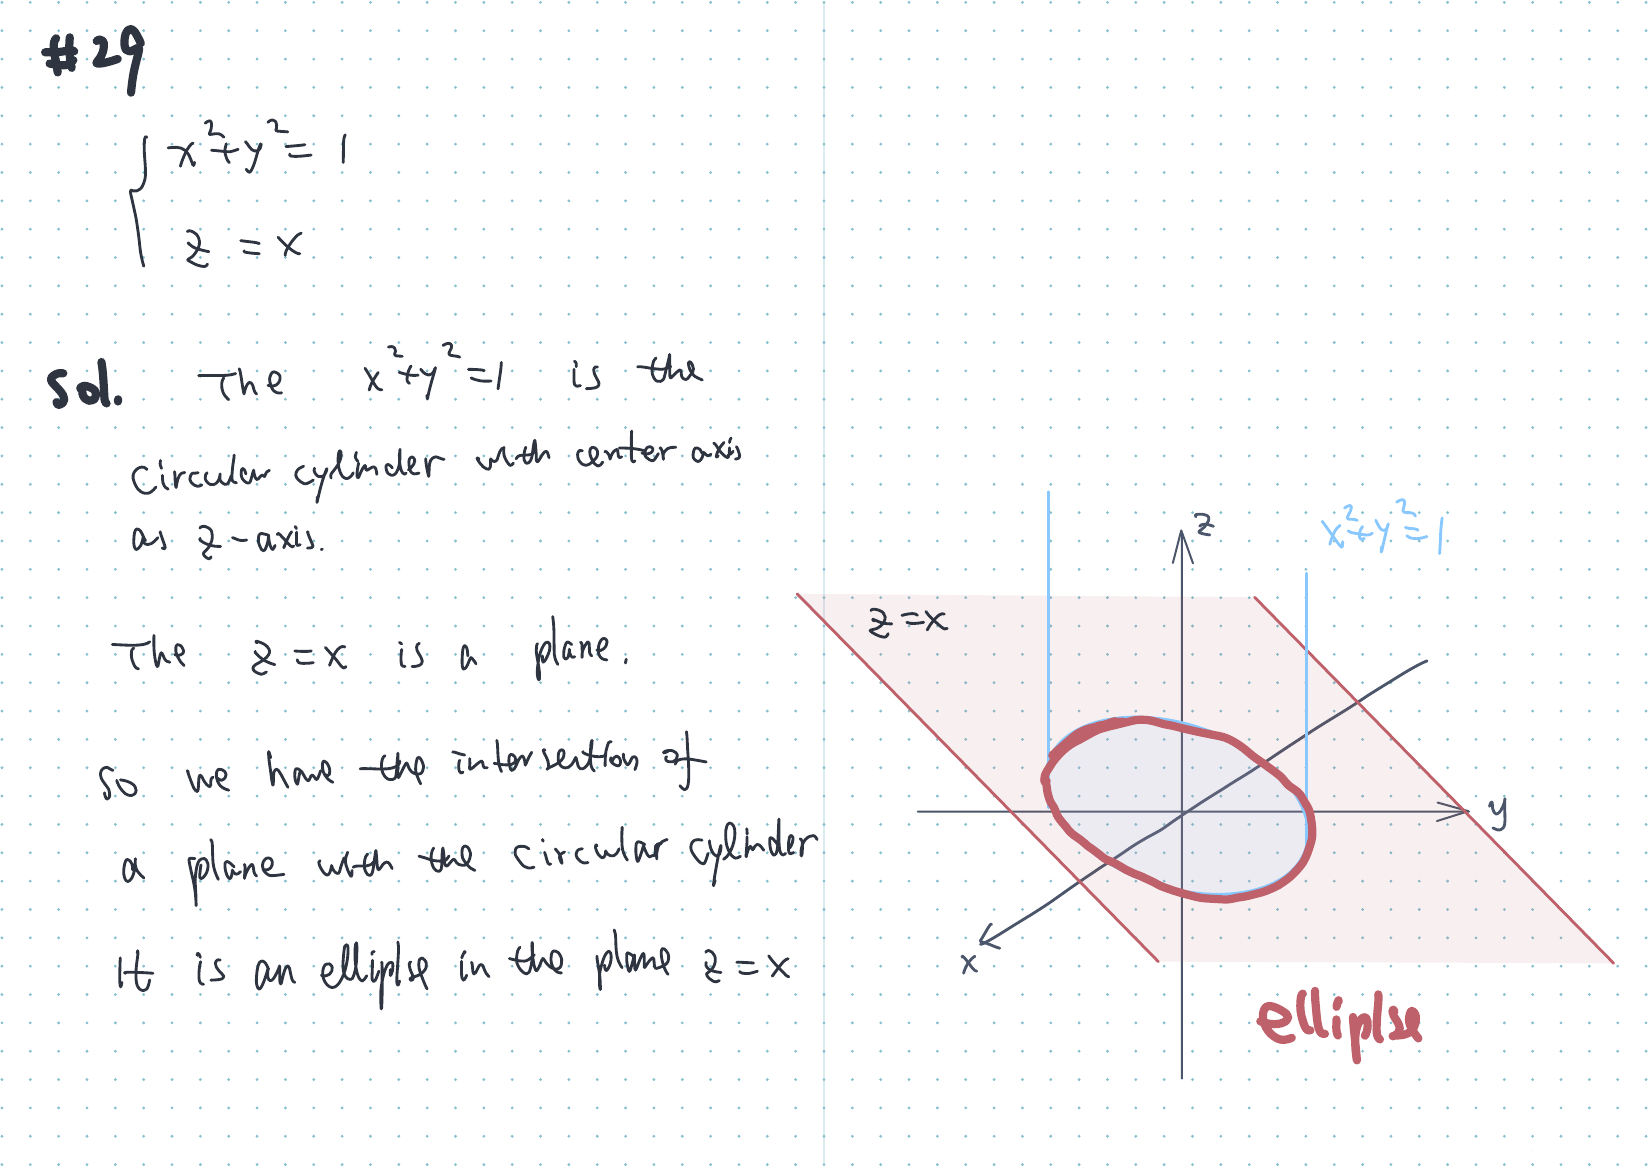 #29
x²+y²=1
z=x
Sol. The x²+y²=1 is the
circular cylinder with center axis
as z-axis.
The z=x is a plane.
So we have the intersection of
a plane with the circular cylinder
It is an elliplse in the plane z=x
z
x²+y²=1
z=x
y
x
elliplse